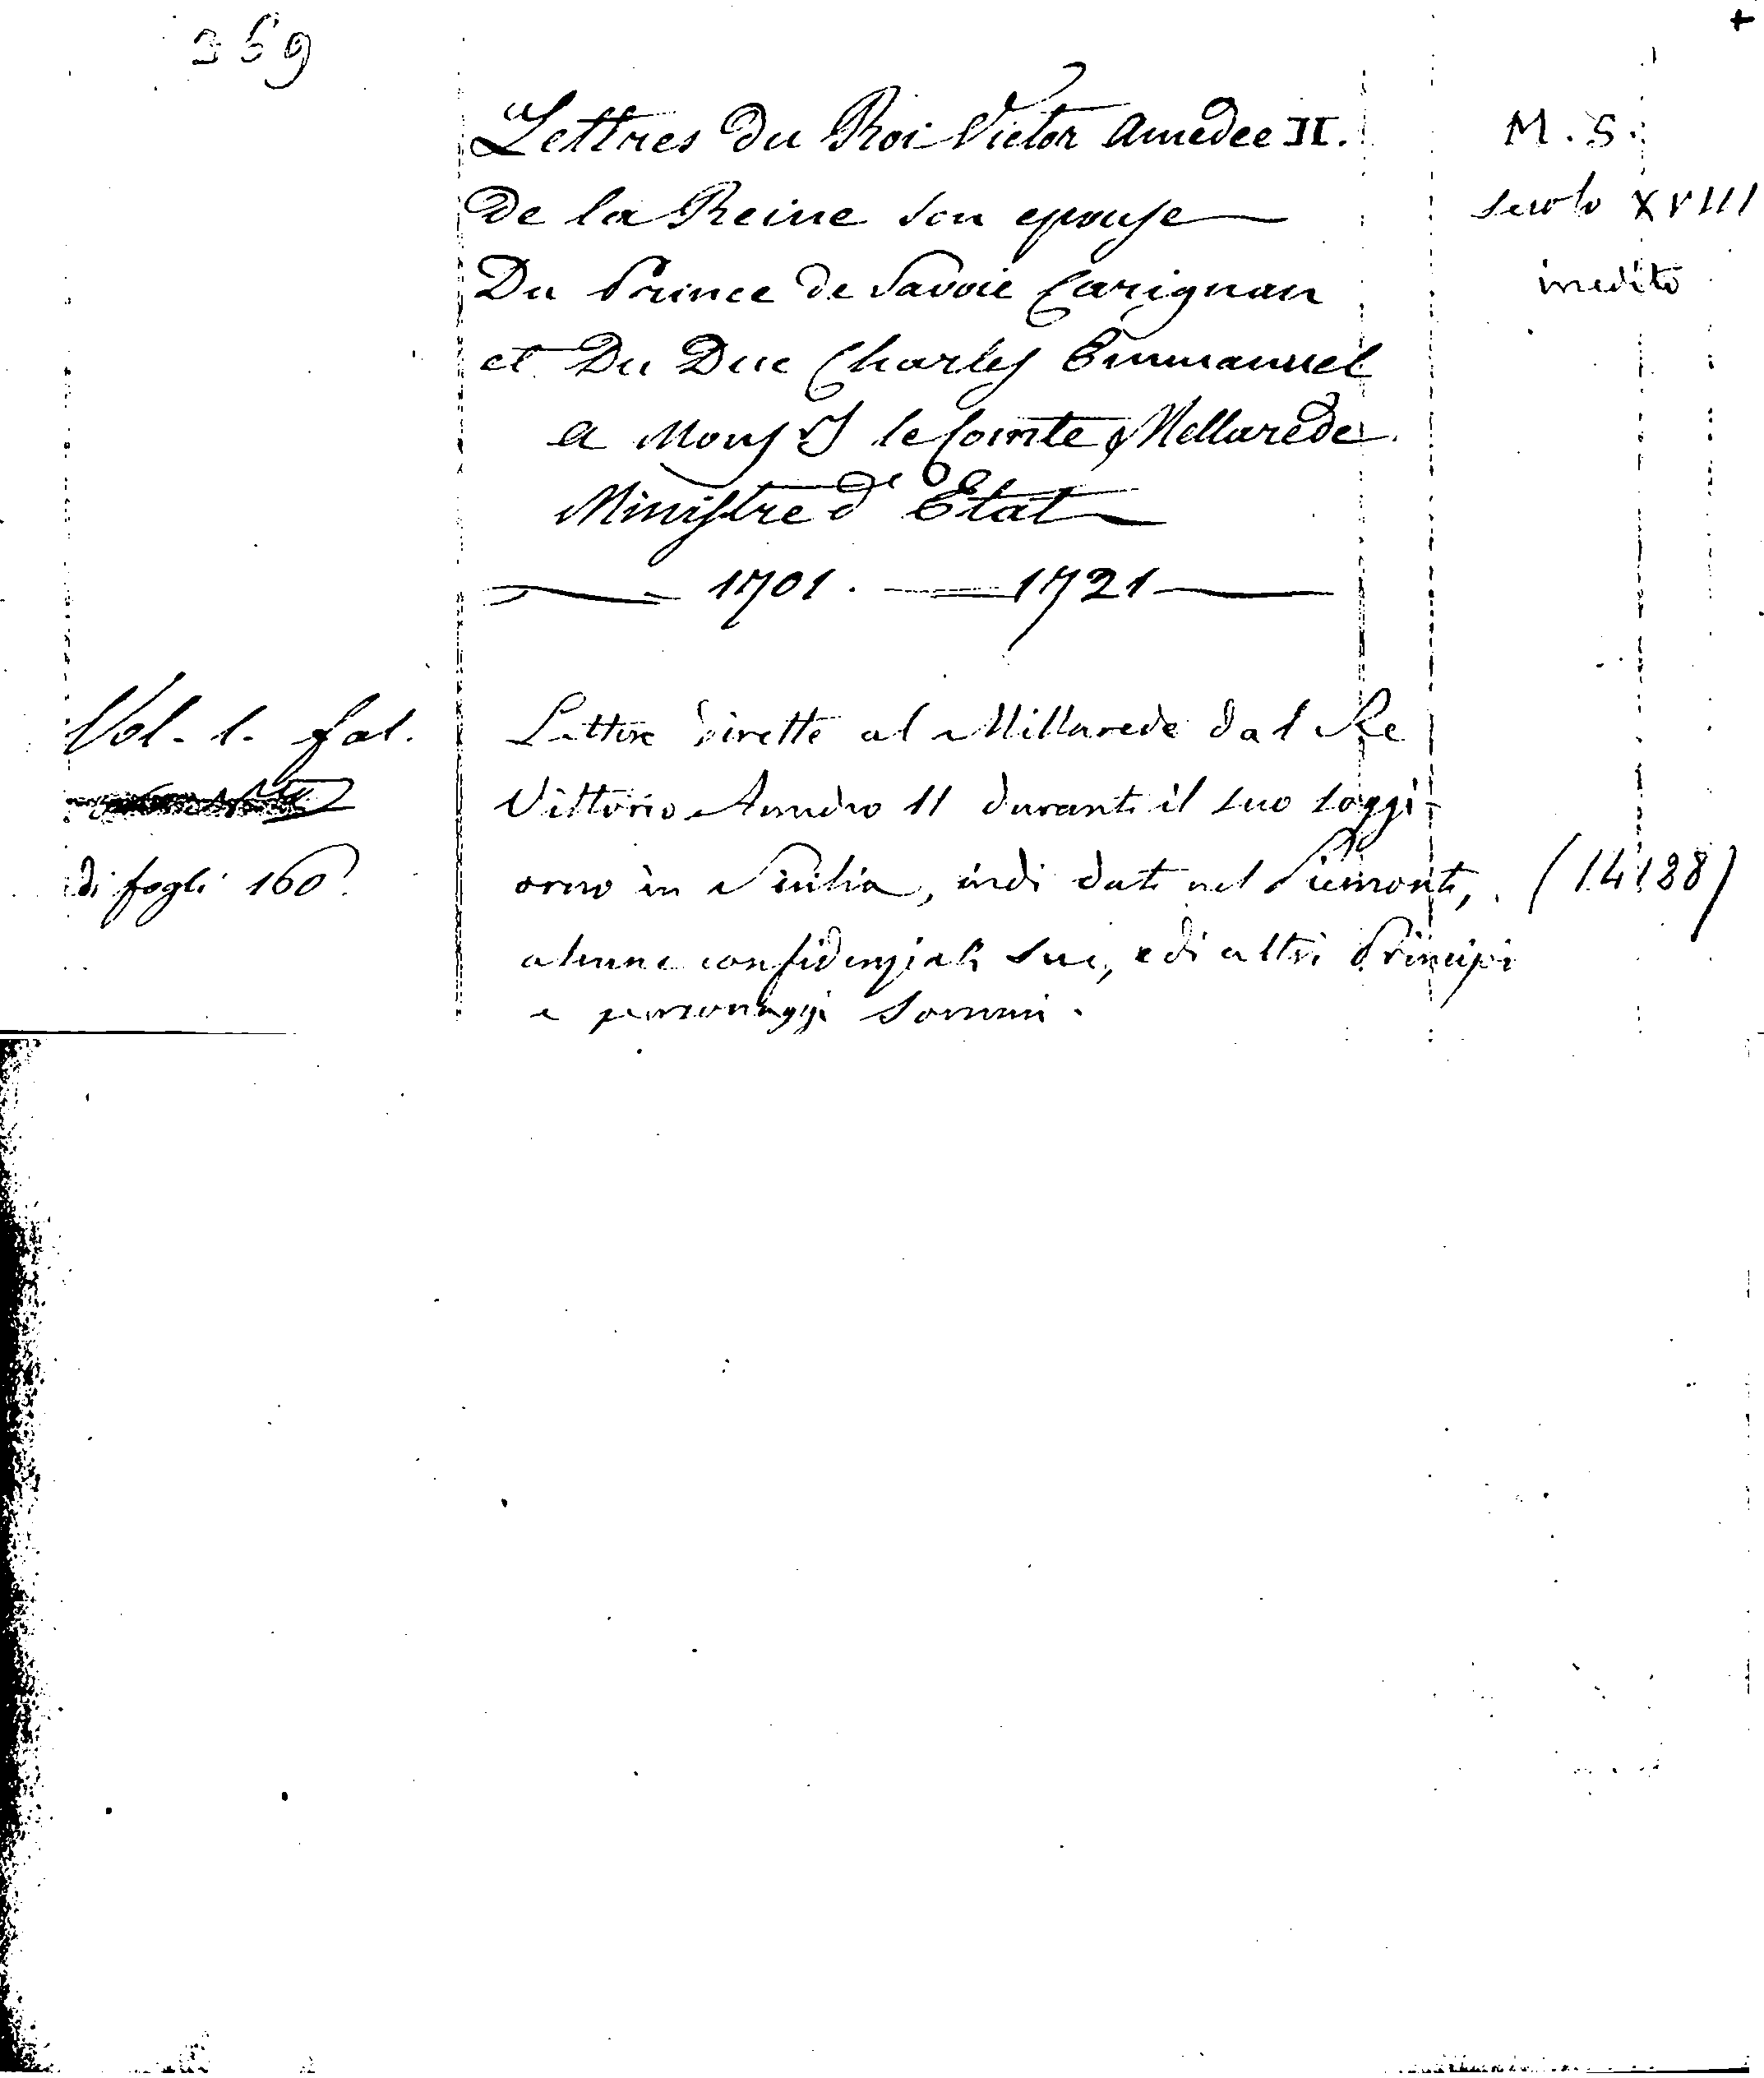 359
+
Lettres Du Roi Victor Amedée II.
De la Reine son epouse
Du Prince de Savoie Carignan
et Du Duc Charles Emmanuel
a Mons.r le Comte Mellarede
Ministre d'Etat
1701. — 1721
M. S.
secolo XVIII
inedito
Vol. 1. fol.
di fogli 160.
Lettere dirette al Millarede dal Re
Vittorio Amedeo II durante il suo soggi-
orno in Sicilia, indi date nel Piemonte,
alcune confidenziali sue, e di altri Principi
e personaggi sommi.
(14188)